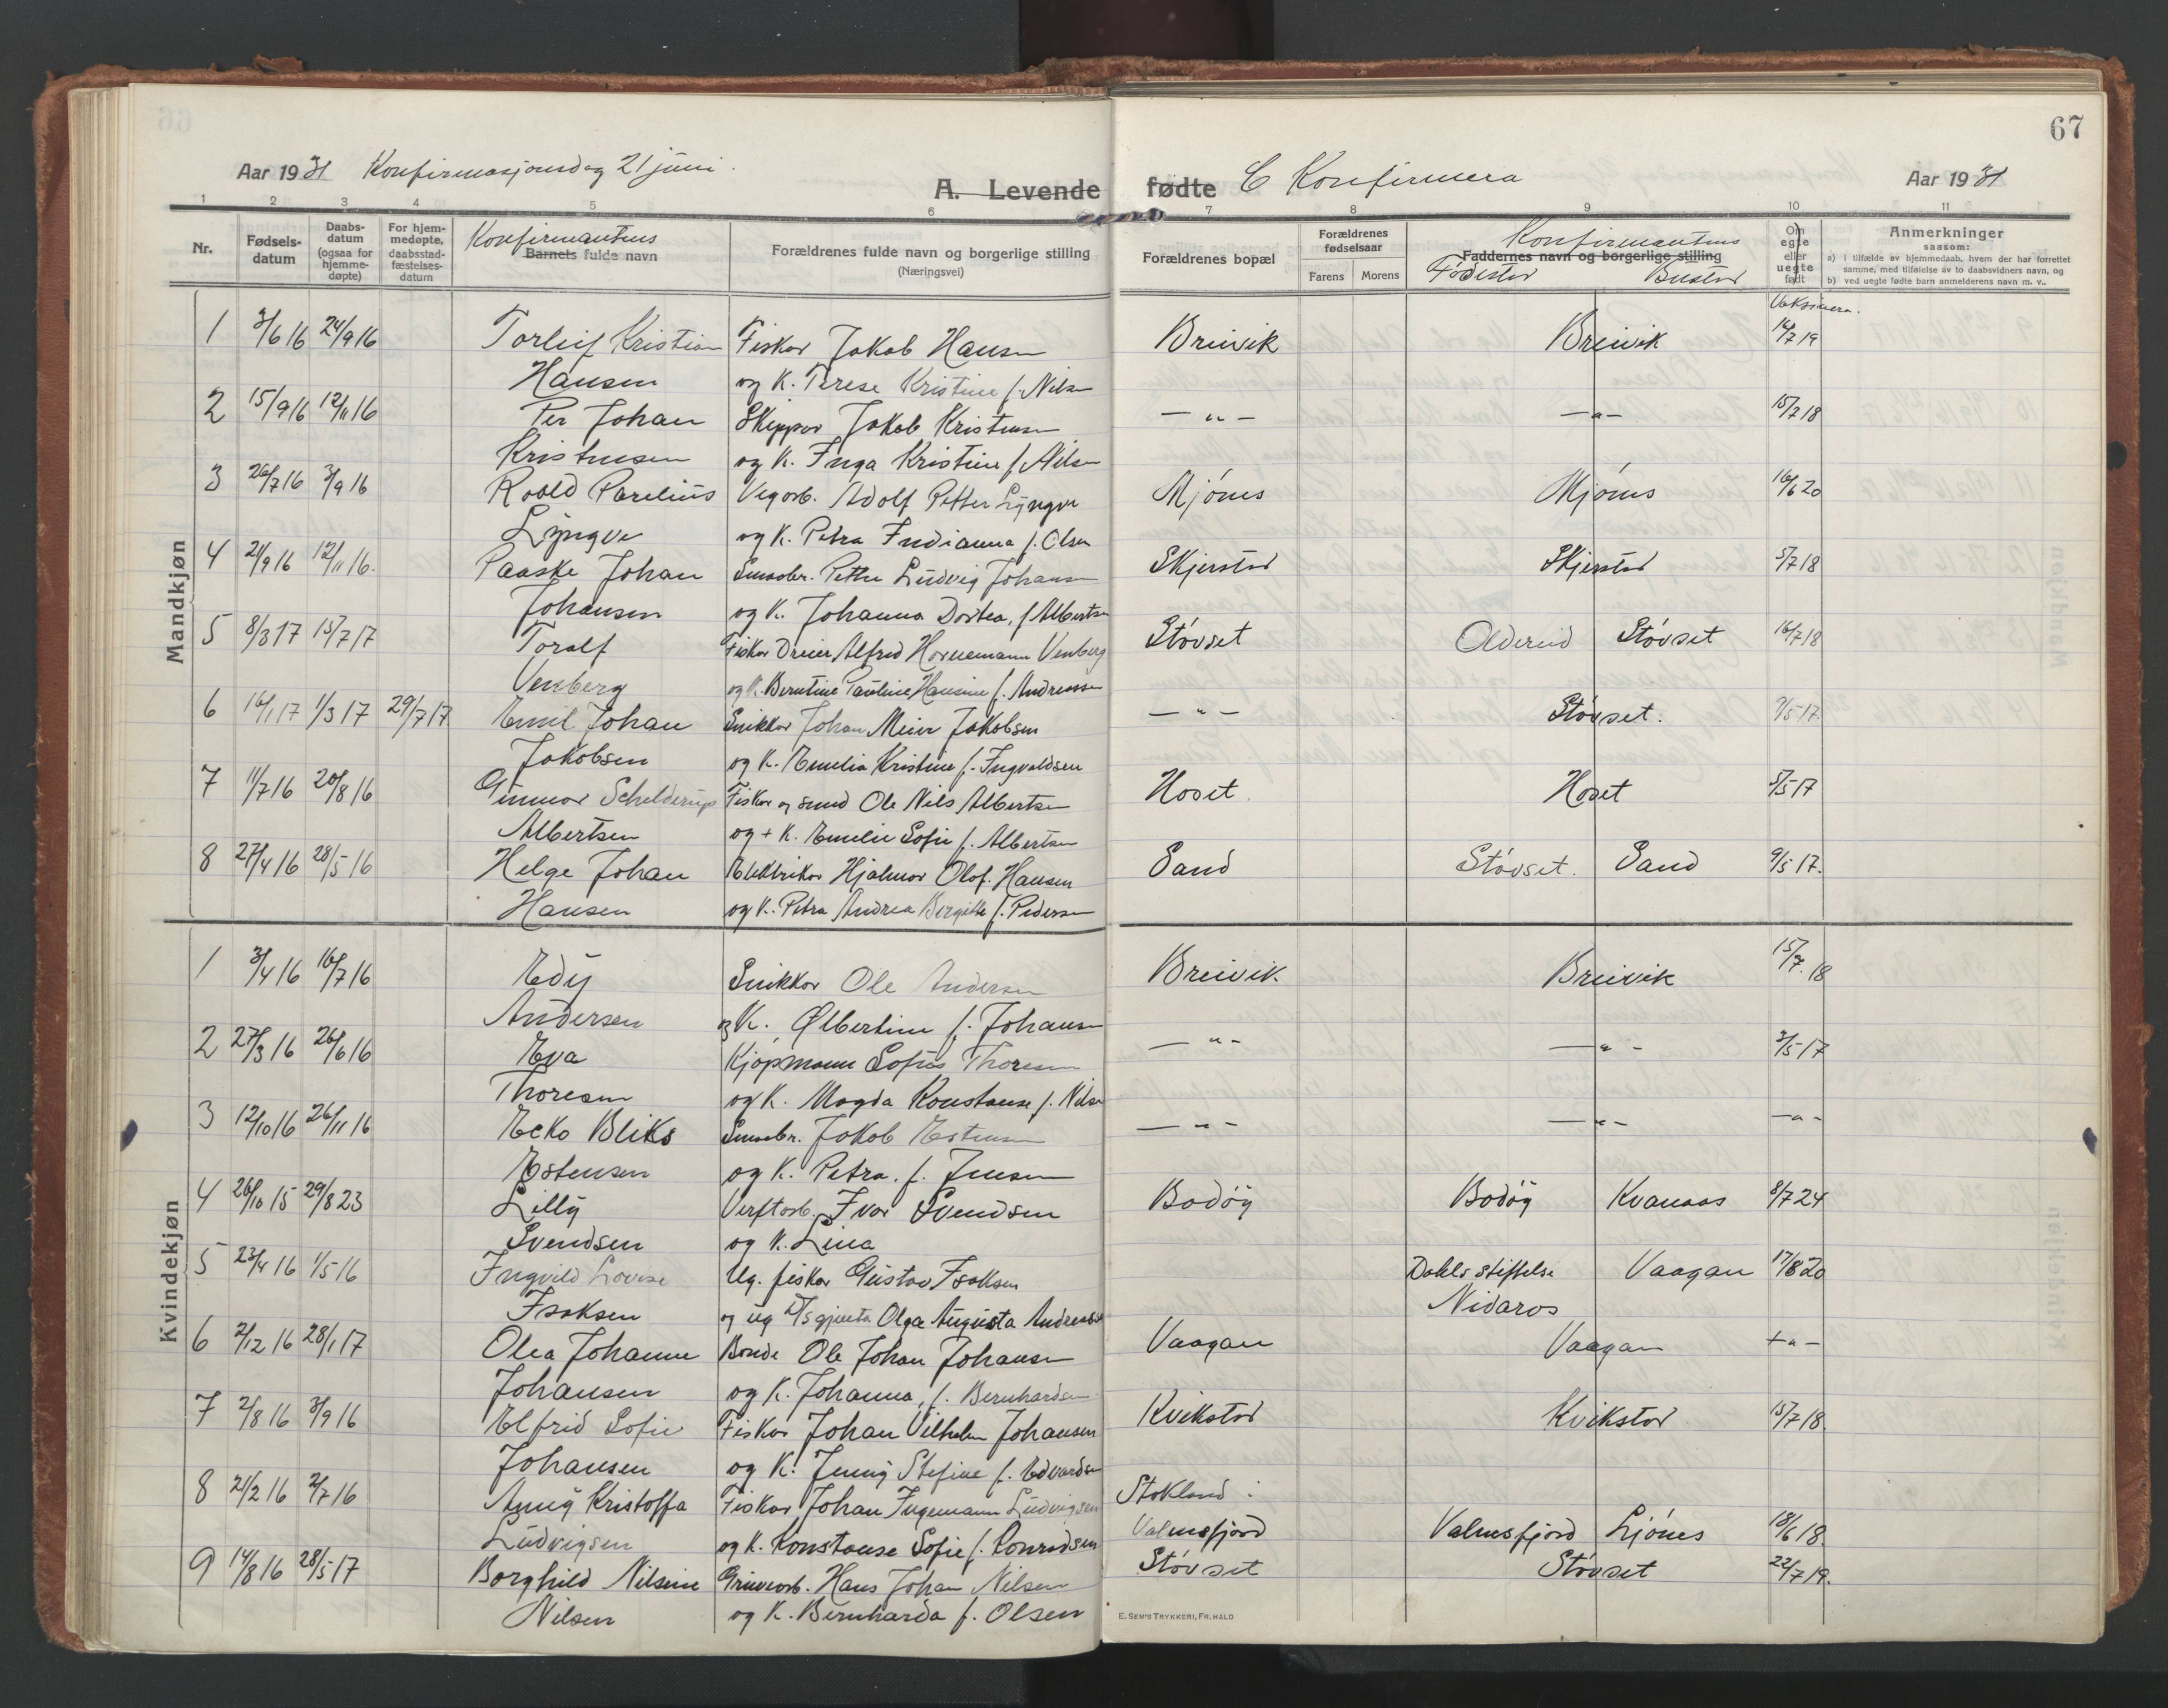 67
Aar 1931 Konfirmasjonsdag 21 juni.
A. Levende fødte C Konfirmera
Aar 1931
1 2 3 4 5 6 7 8 9 10 11
Nr.
Fødsels-
datum
Daabs-
datum
(ogsaa for
hjemme-
døpte)
For hjem-
medøpte,
daabsstad-
fæstelses-
datum
Konfirmantens
Barnets fulde navn
Forældrenes fulde navn og borgerlige stilling
(Næringsvei)
Forældrenes bopæl
Forældrenes
fødselsaar
Farens Morens
Konfirmantens
Faddernes navn og borgerlige stilling
Fødestad Bustad
Om
egte
eller
uegte
født
Anmerkninger
saasom:
a) i tilfælde av hjemmedaab, hvem der har forrettet
samme, med tilføielse av to daabsvidners navn, og
b) ved uegte fødte barn anmelderens navn m. v..
Vaksinera.
Mandkjøn
1 3/6 16 24/9 16 Torleif Kristian Fiskar Jakob Hansen Breivik Breivik 14/7 19
Hansen og K. Terese Kristine f. Nilsen
2 15/9 16 12/11 16 Per Johan Skipper Jakob Kristensen — " — — " — 15/7 18
Kristensen og K. Inga Kristine f. Nilsen
3 26/7 16 3/9 16 Roald Parelius Vegarb. Adolf Petter Lyngve Mjónes Mjónes 16/6 20
Lyngve og K. Petra Indianna f. Olsen
4 21/9 16 12/11 16. Paaske Johan Smaabr. Petter Ludvig Johansen Skjerstad Skjerstad 5/7 18
Johansen og K. Johanna Dortea, f. Albertsen
5 8/3 17 15/7 17 Toralf Fiskar Dreier Alfred Hornemann Venberg Stóvset Oldereid Stóvset 16/7 18
Venberg og K. Berntine Pauline Hansine f. Andreassen
6 16/1 17 1/3 17 29/7 17 Emil Johan Snikkar Johan Meier Jakobsen — " — Stóvset. 9/5 17.
Jakobsen og K. Emelia Kristine f. Ingvaldsen
7 11/7 16 20/8 16 Gunnar Schelderup Fiskar og smed Ole Nils Albertsen Hoset Hoset 5/5 17
Albertsen og + K. Emelie Sofie f. Albertsen
8 27/4 16 28/5 16 Helge Johan Elektrikar Hjalmar Olaf. Hansen Sand Stóvset. Sand 9/5 17.
Hansen og K. Petra Andrea Bergitte f. Pedersen
Kvindekjøn
1 3/4 16 16/7 16 Edy Snikkar Ole Andersen Breivik. Breivik 15/7. 18
Andersen og K. Olbertine f. Johansen
2 27/3 16 26/6 16 Eva Kjøpmann Sofus Thoresen — " — — " — 3/5 17
Thoresen og K. Magda Konstanse f. Nilsen
3 12/10 16 26/11 16 Ecko Bliks Smaabr. Jakob Estensen — " — — " — — " —
Estensen og K. Petra. f. Jensen
4 26/10 15 29/8 23 Lilly Verftarb. Ivar Svendsen Bodóy Bodóy Kvanaas 8/7 24
Svendsen og K. Lina
5 23/4 16 1/5 16 Ingvild Lovise Ug. fiskar Gustav Isaksen Dahls stiftelse Vaagan 17/8 20
Isaksen og ug gjenta Olga Augusta Andreassen Nidaros
6 2/12 16 28/1 17 Olea Johanne Bonde Ole Johan Johansen Vaagan Vaagan — " —
Johansen og K. Johanna, f. Bernhardsen
7 2/8 16 3/9 16 Elfrid Sofie Fiskar Johan Vilhelm Johansen Kvikstad Kvikstad 15/7 18.
Johansen og K. Jenny Stefine f. Edvardsen
8 21/2 16 2/7 16 Anny Kristoffa Fiskar Johan Ingemann Ludvigsen Stokland i
Ludvigsen og K. Konstanse Sofie f. Konradsen Valnesfjord Valnesfjord Ljónes 18/6 18.
9 14/8 16 28/5 17 Borghild Nilsine Gruvearb. Hans Johan Nilsen Stóvset Stóvset 22/7 19.
Nilsen og K. Bernharda f. Olsen
E. SEM'S TRYKKERI, FR.HALD